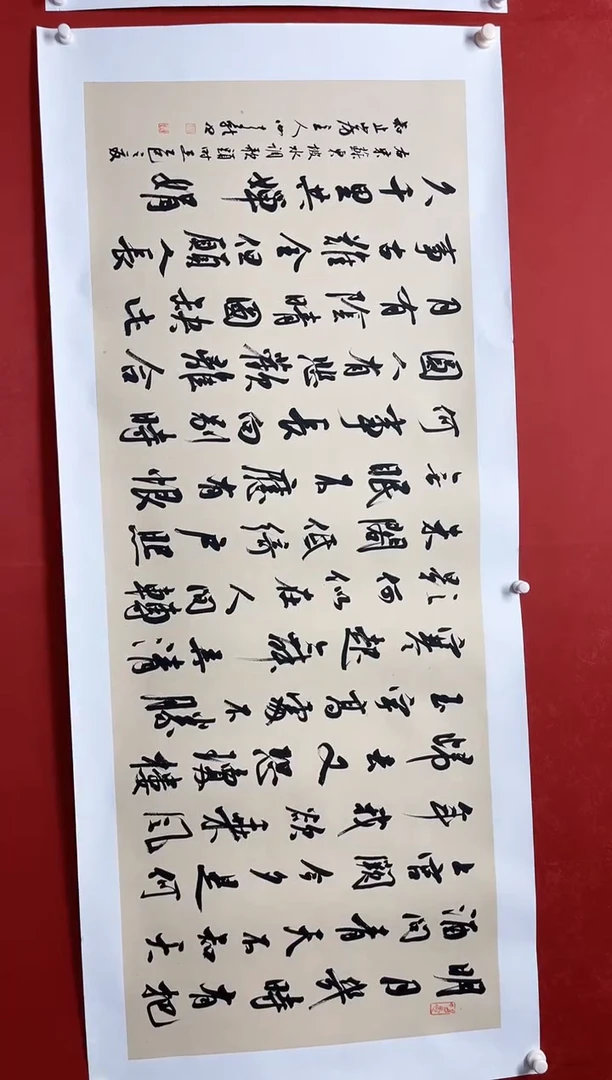 明月幾時有把
酒問青天不知天
上宫闕今夕是何
年我欲乘風
歸去又恐瓊樓
玉宇高處不勝
寒起舞弄清
影何似在人間轉
朱閣低綺户照
無眠不應有恨
何事長向别時
圓人有悲歡離合
月有陰晴圓缺此
事古難全但願人長
久千里共嬋娟
右宋蘇東坡水調歌頭時在乙巳之夏
知止山房主人